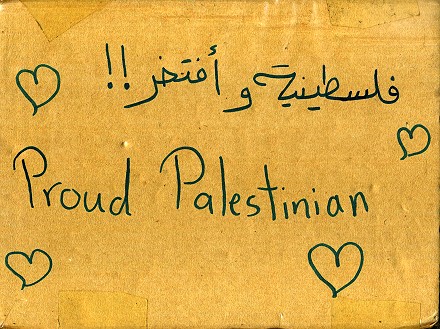 فلسطينية و أفتخر!!
Proud Palestinian